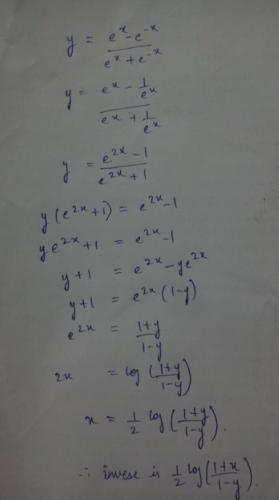 y = e^x - e^-x / e^x + e^-x
y = e^x - 1/e^x / e^x + 1/e^x
y = e^2x - 1 / e^2x + 1
y(e^2x + 1) = e^2x - 1
ye^2x + 1 = e^2x - 1
y + 1 = e^2x - ye^2x
y + 1 = e^2x (1 - y)
e^2x = 1 + y / 1 - y
2x = log (1 + y / 1 - y)
x = 1/2 log (1 + y / 1 - y).
∴ inverse is 1/2 log (1 + x / 1 - y).